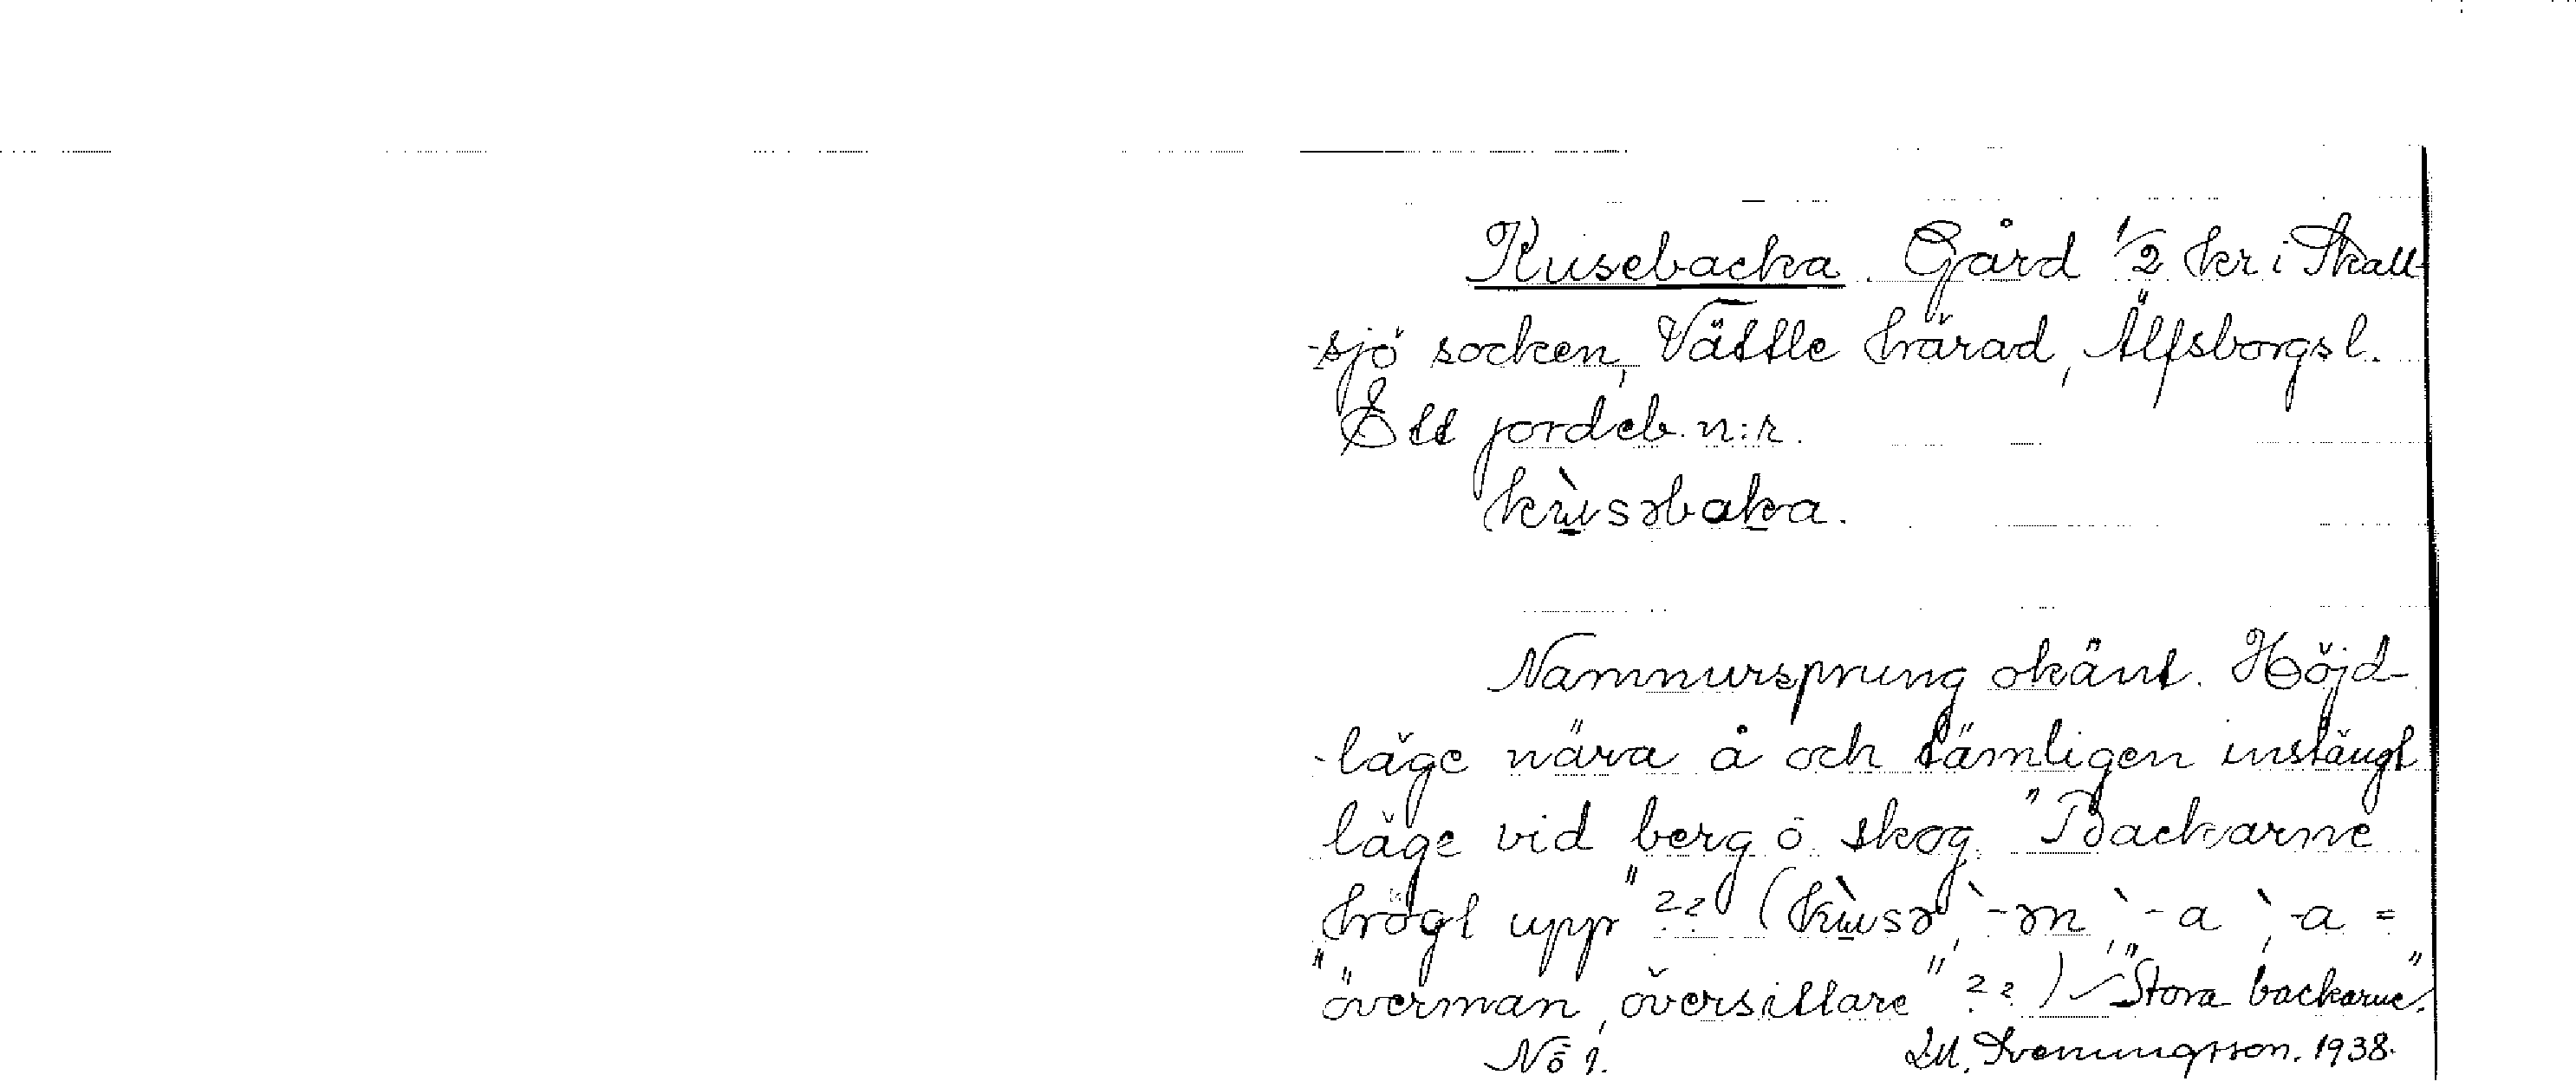 Kusebacka. Gård 1/2 kr i Skall-
-sjö socken, Vättle härad, Älfsborgs l.
Ett jordeb. n:r.
kùsəbaka.
Namnursprung okänt. Höjd-
-läge nära å och tämligen instängt
läge vid berg o. skog. "Backarne
högt upp" ?? (kùsə, `-ən, `-a, `-a =
"överman, översittare" ??) "Stora backarne".
Nö 1.
Svenungsson. 1938.